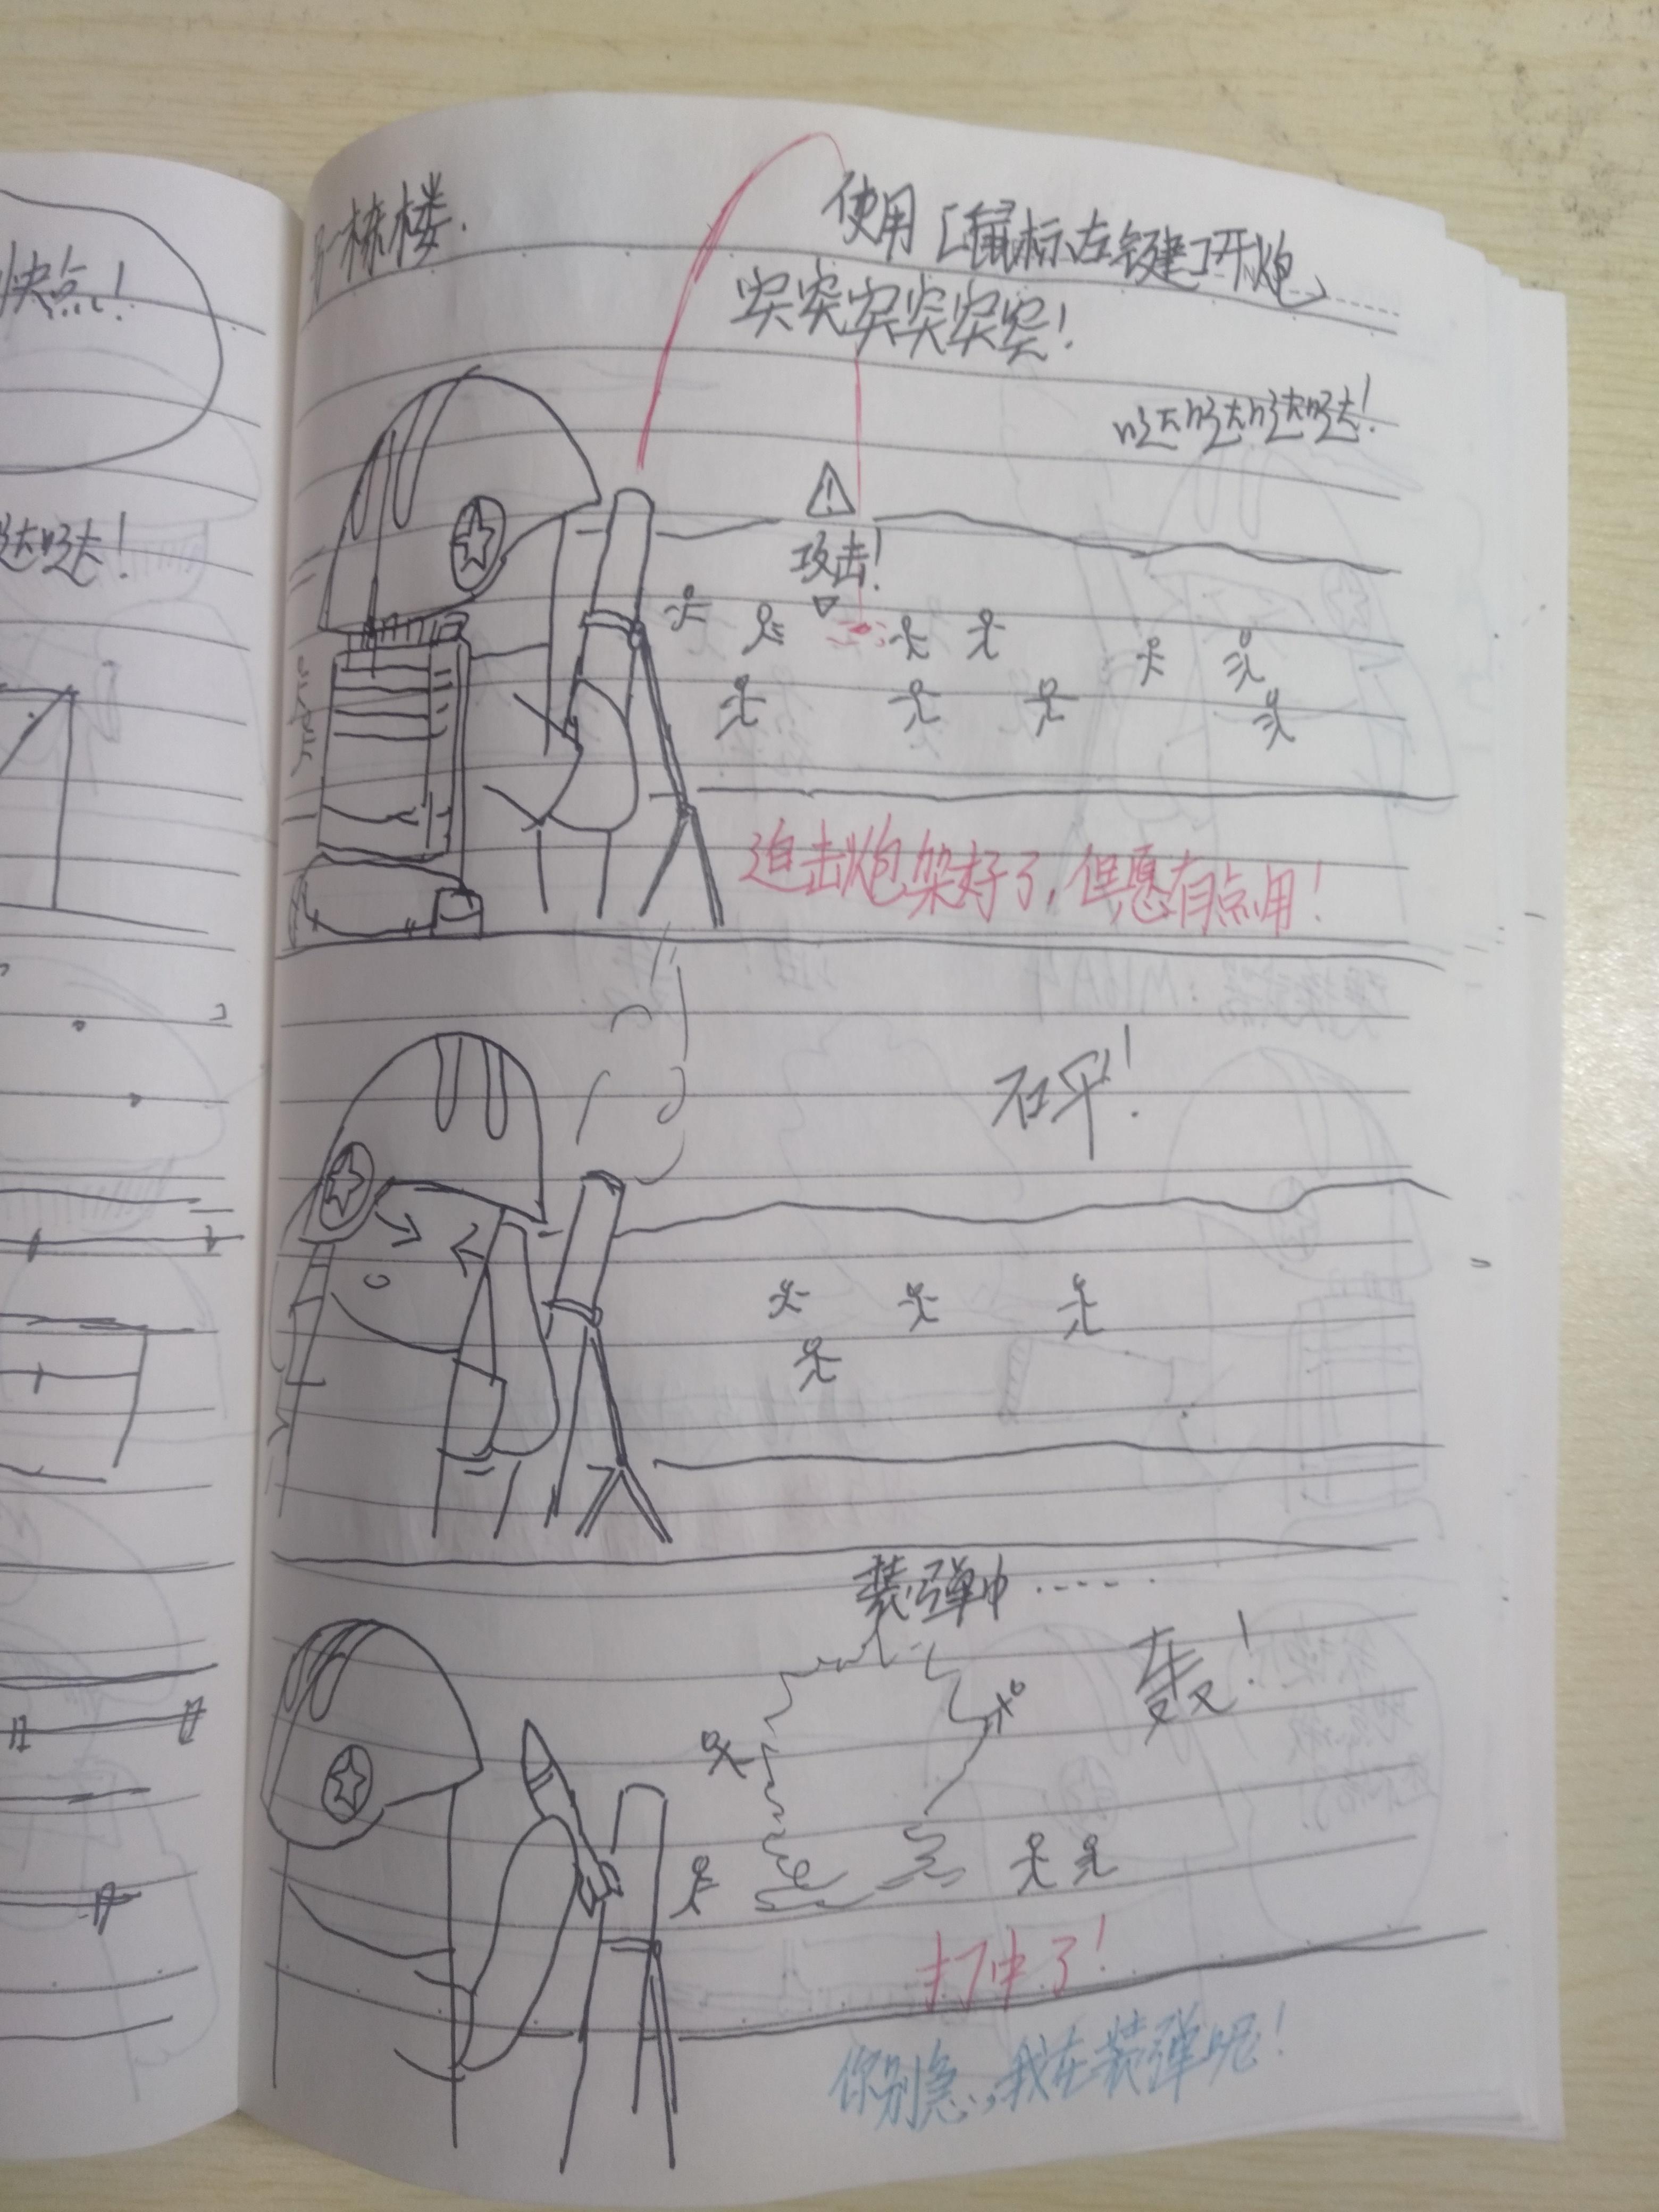 快点！
哒哒！
另一栋楼.
使用［鼠标左键］开炮
突突突突突突！
哒哒哒哒！
攻击！
迫击炮架好了，但愿有点用！
砰！
装弹中……
轰！
打中了！
你别急，我在装弹呢！